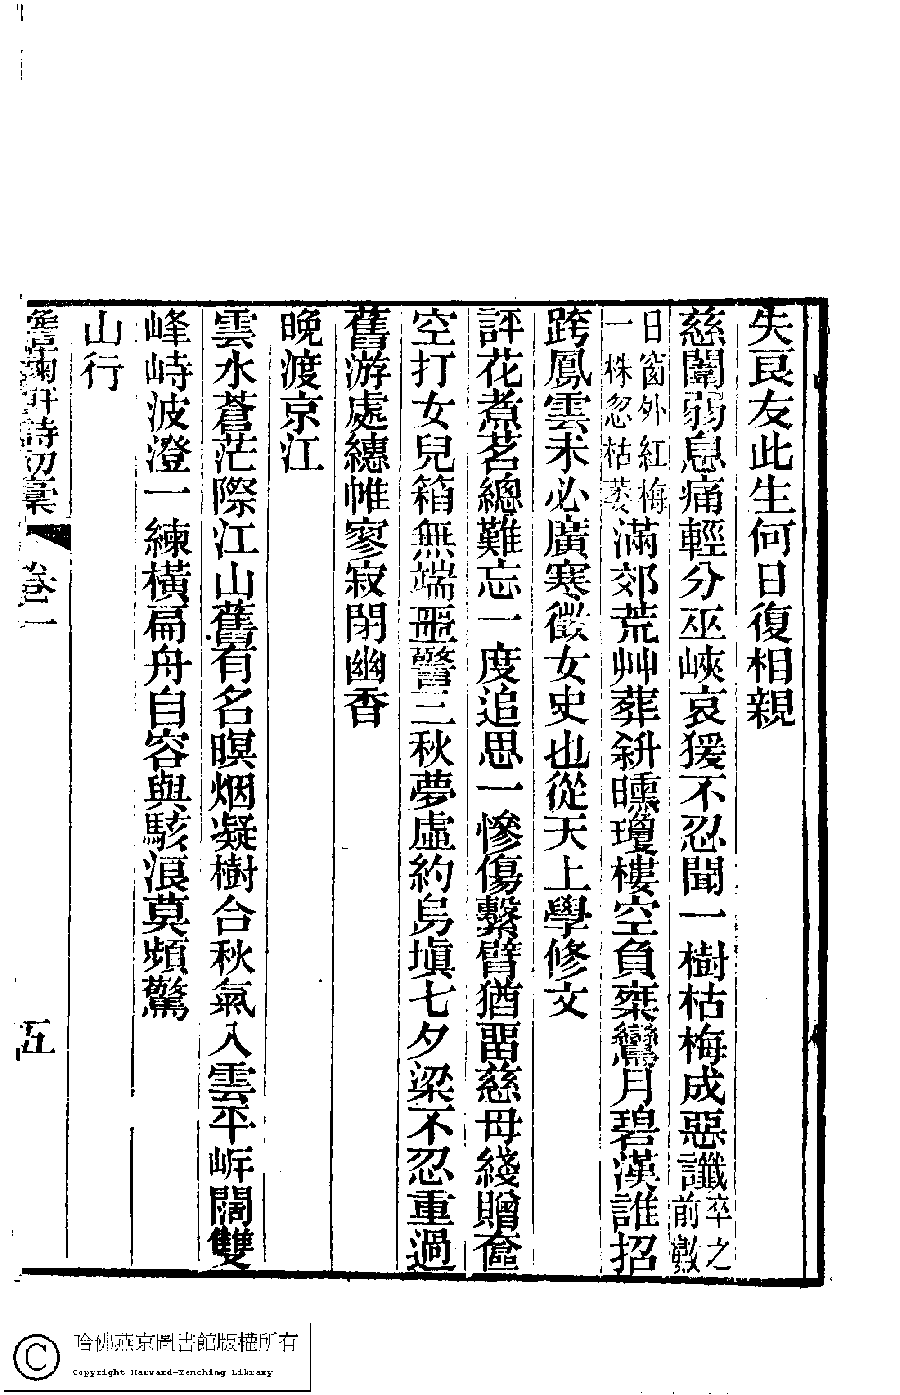 失良友此生何日復相親
慈闈弱息痛輕分巫峽哀猨不忍聞一樹枯梅成惡讖卒之前數
日窗外紅梅一株忽枯萎滿郊荒艸葬斜曛瓊樓空負乘鸞月碧漢誰招
跨鳳雲未必廣寒徵女史也從天上學修文
評花煮茗總難忘一度追思一慘傷繫臂猶畱慈母綫贈奩
空打女兒箱無端噩警三秋夢虛約舄塡七夕梁不忍重過
舊游處繐帷寥寂閉幽香
晚渡京江
雲水蒼茫際江山舊有名暝烟凝樹合秋氣入雲平岸闊雙
峰峙波澄一練橫扁舟自容與駭浪莫頻驚
山行
詩初稾 卷二 五
哈佛燕京圖書館版權所有
Copyright Harvard-Yenching Library